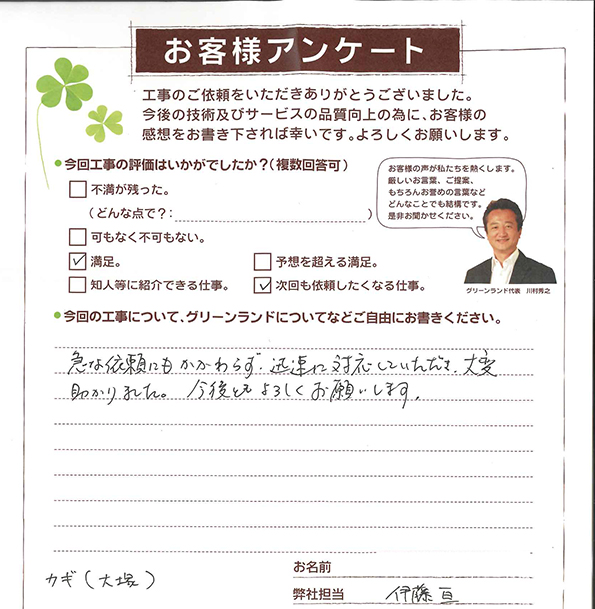 お客様アンケート
工事のご依頼をいただきありがとうございました。
今後の技術及びサービスの品質向上の為に、お客様の
感想をお書き下されば幸いです。よろしくお願いします。
●今回工事の評価はいかがでしたか？(複数回答可)
不満が残った。
(どんな点で？： )
可もなく不可もない。
満足。
予想を超える満足。
知人等に紹介できる仕事。
次回も依頼したくなる仕事。
お客様の声が私たちを熱くします。
厳しいお言葉、ご提案、
もちろんお誉めの言葉など
どんなことでも結構です。
是非お聞かせください。
グリーンランド代表 川村秀之
●今回の工事について、グリーンランドについてなどご自由にお書きください。
急な依頼にもかかわらず、迅速に対応していただき、大変
助かりました。今後ともよろしくお願いします。
カギ(大塚)
お名前
弊社担当 伊藤 亘